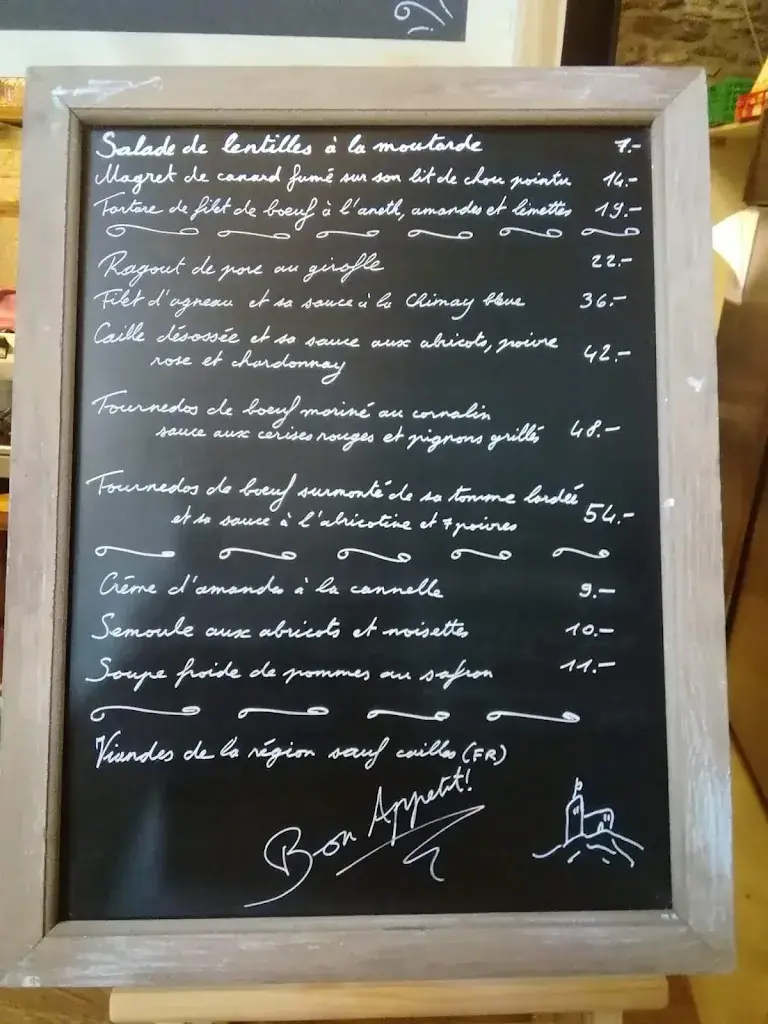 Salade de lentilles à la moutarde 7.-
Magret de canard fumé sur son lit de chou pointu 14.-
Tartare de filet de boeuf à l'aneth, amandes et limettes 19.-
Ragout de porc au girofle 22.-
Filet d'agneau et sa sauce à la Chimay bleue 36.-
Caille désossée et sa sauce aux abricots, poivre
rose et chardonnay 42.-
Tournedos de boeuf mariné au cornalin
sauce aux cerises rouges et pignons grillés 48.-
Tournedos de boeuf surmonté de sa tomme lardée
et sa sauce à l'abricotine et 7 poivres 54.-
Crème d'amandes à la cannelle 9.-
Semoule aux abricots et noisettes 10.-
Soupe froide de pommes au safran 11.-
Viandes de la région sauf cailles (FR)
Bon Appetit!